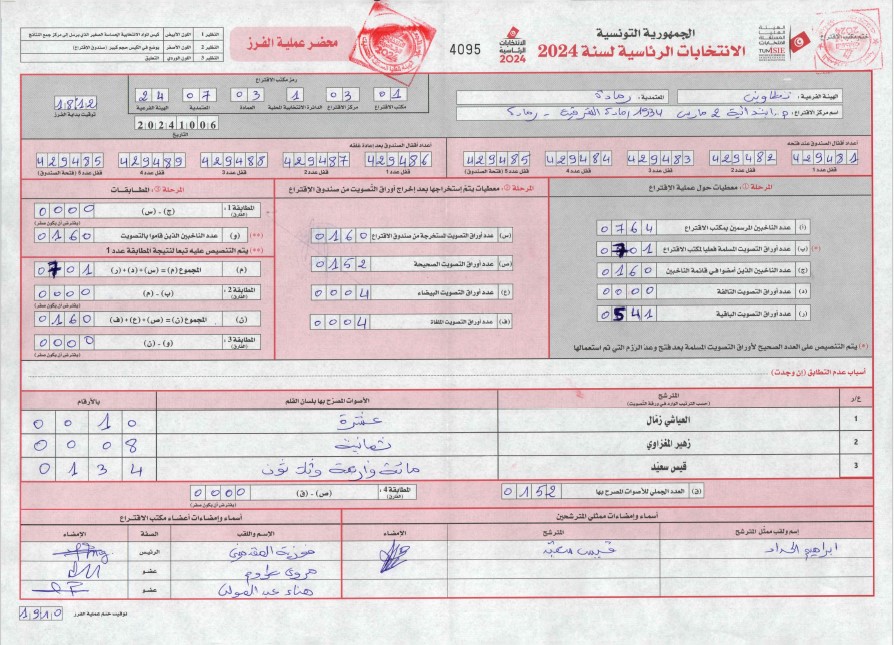 الجمهورية التونسية
الانتخابات الرئاسية لسنة 2024
الهيئة العليا المستقلة للانتخابات
ISIE
الانتخابات الرئاسية 2024
4095
محضر عملية الفرز
النظير 1 اللون الأبيض
النظير 2 اللون الأصفر يوضع في الكيس حجم كبير (صندوق الإقتراع)
النظير 3 اللون الوردي التعليق
ختم مكتب الإقتراع
الهيئة الفرعية : تطاوين
المعتمدية : رمادة
اسم مركز الإقتراع : م. ابتدائية 2 مارس 1934 رمادة الشرقية - رمادة
رمز مكتب الإقتراع
01 03 1 03 07 24
مكتب الاقتراع مركز الإقتراع الدائرة الانتخابية المحلية العمادة المعتمدية الهيئة الفرعية
20241006
التاريخ
1812
توقيت بداية الفرز
أعداد أقفال الصندوق عند فتحه
429481 429482 429483 429484 429485
قفل عدد 1 قفل عدد 2 قفل عدد 3 قفل عدد 4 قفل عدد 5 (فتحة الصندوق)
أعداد أقفال الصندوق بعد إعادة غلقه
429486 429487 429488 429489 429485
قفل عدد 1 قفل عدد 2 قفل عدد 3 قفل عدد 4 قفل عدد 5 (فتحة الصندوق)
المرحلة ①: معطيات حول عملية الإقتراع
(أ) عدد الناخبين المرسمين بمكتب الاقتراع 0764
(*) (ب) عدد أوراق التصويت المسلمة فعليا لمكتب الاقتراع 0701
(ج) عدد الناخبين الذين أمضوا في قائمة الناخبين 0160
(د) عدد أوراق التصويت التالفة 0000
(ر) عدد أوراق التصويت الباقية 0541
(*) يتم التنصيص على العدد الصحيح لأوراق التصويت المسلمة بعد فتح وعد الرزم التي تم استعمالها
المرحلة ②: معطيات يتم إستخراجها بعد إخراج أوراق التصويت من صندوق الإقتراع
(س) عدد أوراق التصويت المستخرجة من صندوق الاقتراع 0160
(ص) عدد أوراق التصويت الصحيحة 0152
(ع) عدد أوراق التصويت البيضاء 0004
(ف) عدد أوراق التصويت الملغاة 0004
المرحلة ③: المطابقات
المطابقة 1: (الفارق) (ج) - (س) 0000
(يفترض أن يكون صفر)
(**) (و) عدد الناخبين الذين قاموا بالتصويت 0160
(**) يتم التنصيص عليه تبعا لنتيجة المطابقة عدد 1
(م) المجموع (م) = (س)+(د)+(ر) 0701
المطابقة 2: (الفارق) (ب) - (م) 0000
(يفترض أن يكون صفر)
(ن) المجموع (ن) = (ص)+(ع)+(ف) 0160
المطابقة 3: (الفارق) (و) - (ن) 0000
(يفترض أن يكون صفر)
أسباب عدم التطابق (إن وجدت)
ع/ر المترشح الأصوات المصرّح بها بلسان القلم بالأرقام
(حسب الترتيب الوارد في ورقة التصويت)
1 العياشي زمّال عشرة 0010
2 زهير المغزاوي ثمانية 0008
3 قيس سعيّد مائة وأربعة وثلاثون 0134
(ق) العدد الجملي للأصوات المصرح بها 0152
المطابقة 4: (الفارق) (ص) - (ق) 0000
(يفترض أن يكون صفر)
أسماء وإمضاءات ممثلي المترشحين
إسم ولقب ممثّل المترشح المترشح الإمضاء
ابراهيم الحداد قيس سعيّد
أسماء وإمضاءات أعضاء مكتب الاقتراع
الإسم واللقب الصفة الإمضاء
الرئيس
عضو
هناء عضو
توقيت ختم عملية الفرز 1910